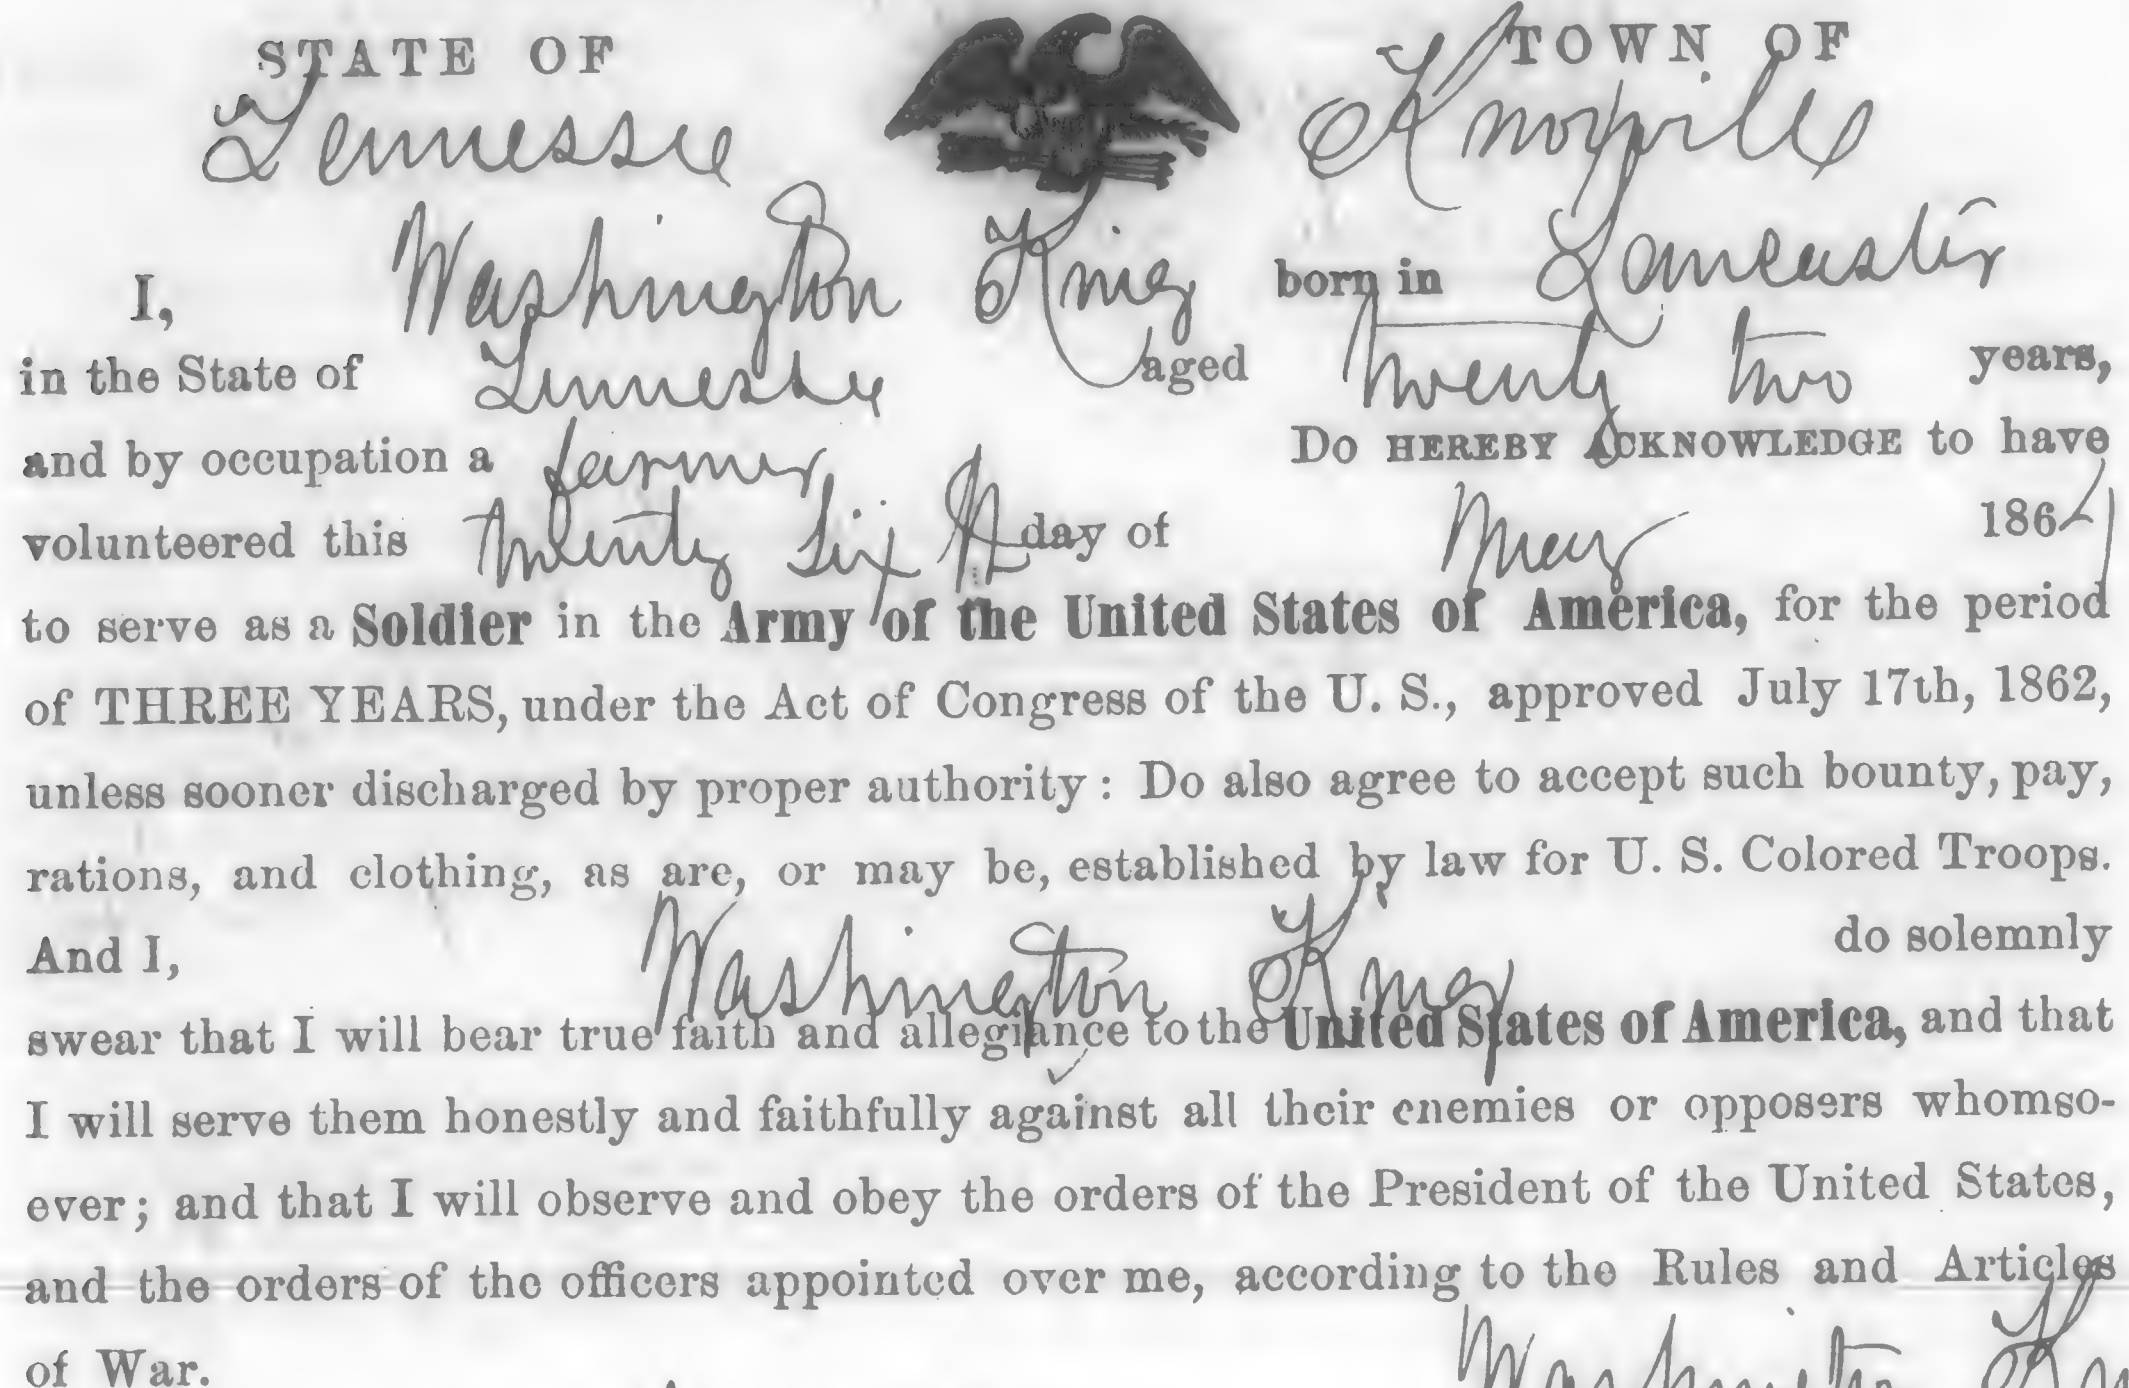 STATE OF TOWN OF
Tennessee Knoxville
I, Washington King born in Lancaster
in the State of Tennessee aged Twenty two years,
and by occupation a farmer Do HEREBY ACKNOWLEDGE to have
volunteered this Twenty Six th day of May 1864
to serve as a Soldier in the Army of the United States of America, for the period
of THREE YEARS, under the Act of Congress of the U. S., approved July 17th, 1862,
unless sooner discharged by proper authority: Do also agree to accept such bounty, pay,
rations, and clothing, as are, or may be, established by law for U. S. Colored Troops.
And I, Washington King do solemnly
swear that I will bear true faith and allegiance to the United States of America, and that
I will serve them honestly and faithfully against all their enemies or opposers whomso-
ever; and that I will observe and obey the orders of the President of the United States,
and the orders of the officers appointed over me, according to the Rules and Articles
of War.